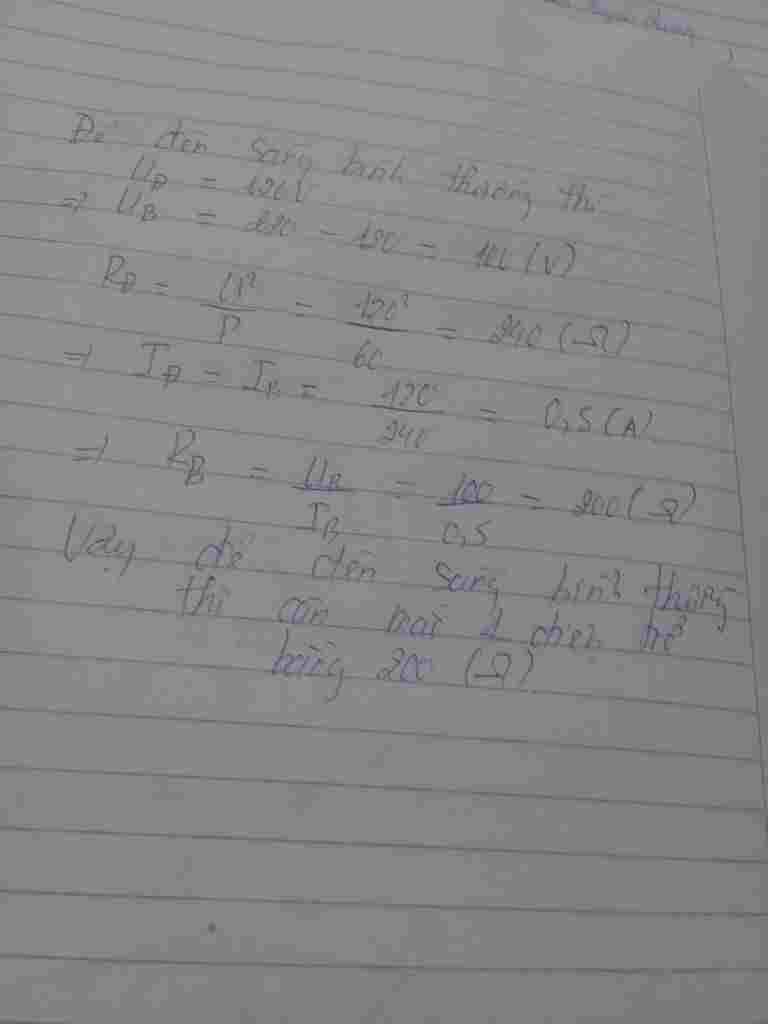 Để đèn sáng bình thường thì
U_Đ = 120V
=> U_B = 220 - 120 = 100 (V)
R_Đ = U²/P = 120²/60 = 240 (Ω)
=> I_Đ = I_B = 120/240 = 0,5 (A)
=> R_B = U_B/I_B = 100/0,5 = 200 (Ω)
Vậy để đèn sáng bình thường
thì cần 1 điện trở
bằng 200 (Ω)